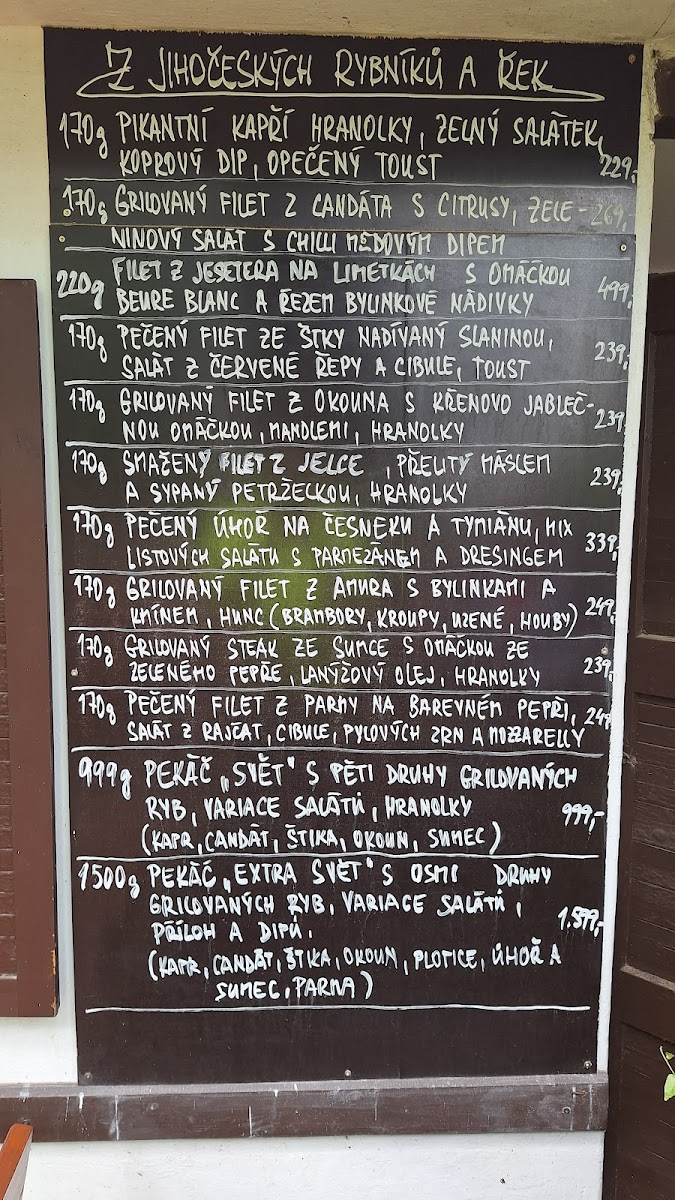 Z JIHOČESKÝCH RYBNÍKŮ A ŘEK
170g PIKANTNÍ KAPŘÍ HRANOLKY, ZELNÝ SALÁTEK,
KOPROVÝ DIP, OPEČENÝ TOUST 229,-
170g GRILOVANÝ FILET Z CANDÁTA S CITRUSY, ZELE- 269,-
NINOVÝ SALÁT S CHILLI MEDOVÝM DIPEM
220g FILET Z JESETERA NA LIMETKÁCH S OMÁČKOU
BEURE BLANC A ŘEZEM BYLINKOVÉ NÁDIVKY 499,-
170g PEČENÝ FILET ZE ŠTIKY NADÍVANÝ SLANINOU,
SALÁT Z ČERVENÉ ŘEPY A CIBULE, TOUST 239,-
170g GRILOVANÝ FILET Z OKOUNA S KŘENOVO JABLEČ-
NOU OMÁČKOU, MANDLEMI, HRANOLKY 239,-
170g SMAŽENÝ FILET Z JELCE, PŘELITÝ MÁSLEM
A SYPANÝ PETRŽELKOU, HRANOLKY 239,-
170g PEČENÝ ÚHOŘ NA ČESNEKU A TYMIÁNU, MIX
LISTOVÝCH SALÁTŮ S PARMEZÁNEM A DRESINGEM 339,-
170g GRILOVANÝ FILET Z AMURA S BYLINKAMI A
KMÍNEM, HUNC (BRAMBORY, KROUPY, UZENÉ, HOUBY) 249,-
170g GRILOVANÝ STEAK ZE SUMCE S OMÁČKOU ZE
ZELENÉHO PEPŘE, LANÝŽOVÝ OLEJ, HRANOLKY 239,-
170g PEČENÝ FILET Z PARMY NA BAREVNÉM PEPŘI, 249,-
SALÁT Z RAJČAT, CIBULE, PYLOVÝCH ZRN A MOZZARELLY
999g PEKÁČ „SVĚT" S PĚTI DRUHY GRILOVANÝCH
RYB, VARIACE SALÁTŮ, HRANOLKY 999,-
(KAPR, CANDÁT, ŠTIKA, OKOUN, SUMEC)
1500g PEKÁČ „EXTRA SVĚT" S OSMI DRUHY
GRILOVANÝCH RYB, VARIACE SALÁTŮ,
PŘÍLOH A DIPŮ. 1.599,-
(KAPR, CANDÁT, ŠTIKA, OKOUN, PLOTICE, ÚHOŘ A
SUMEC, PARMA)